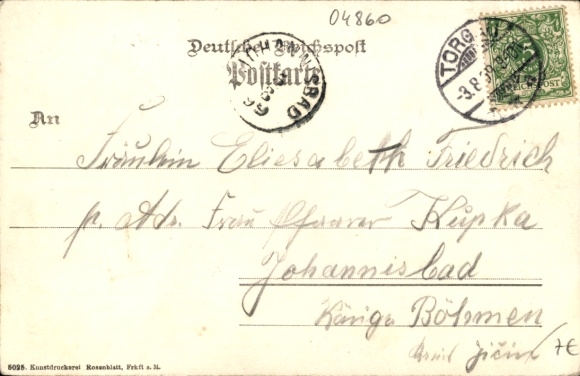 04860
Deutsche Reichspost
Postkarte
JOHANNISBAD
TORGAU
-3.8
REICHSPOST
An
Fräulein Eliesabeth Friedrich
p. Adr. Frau Pfarrer Kupka
Johannisbad
Böhmen
Jičin
7€
5025. Kunstdruckerei Rosenblatt, Frkft a. M.